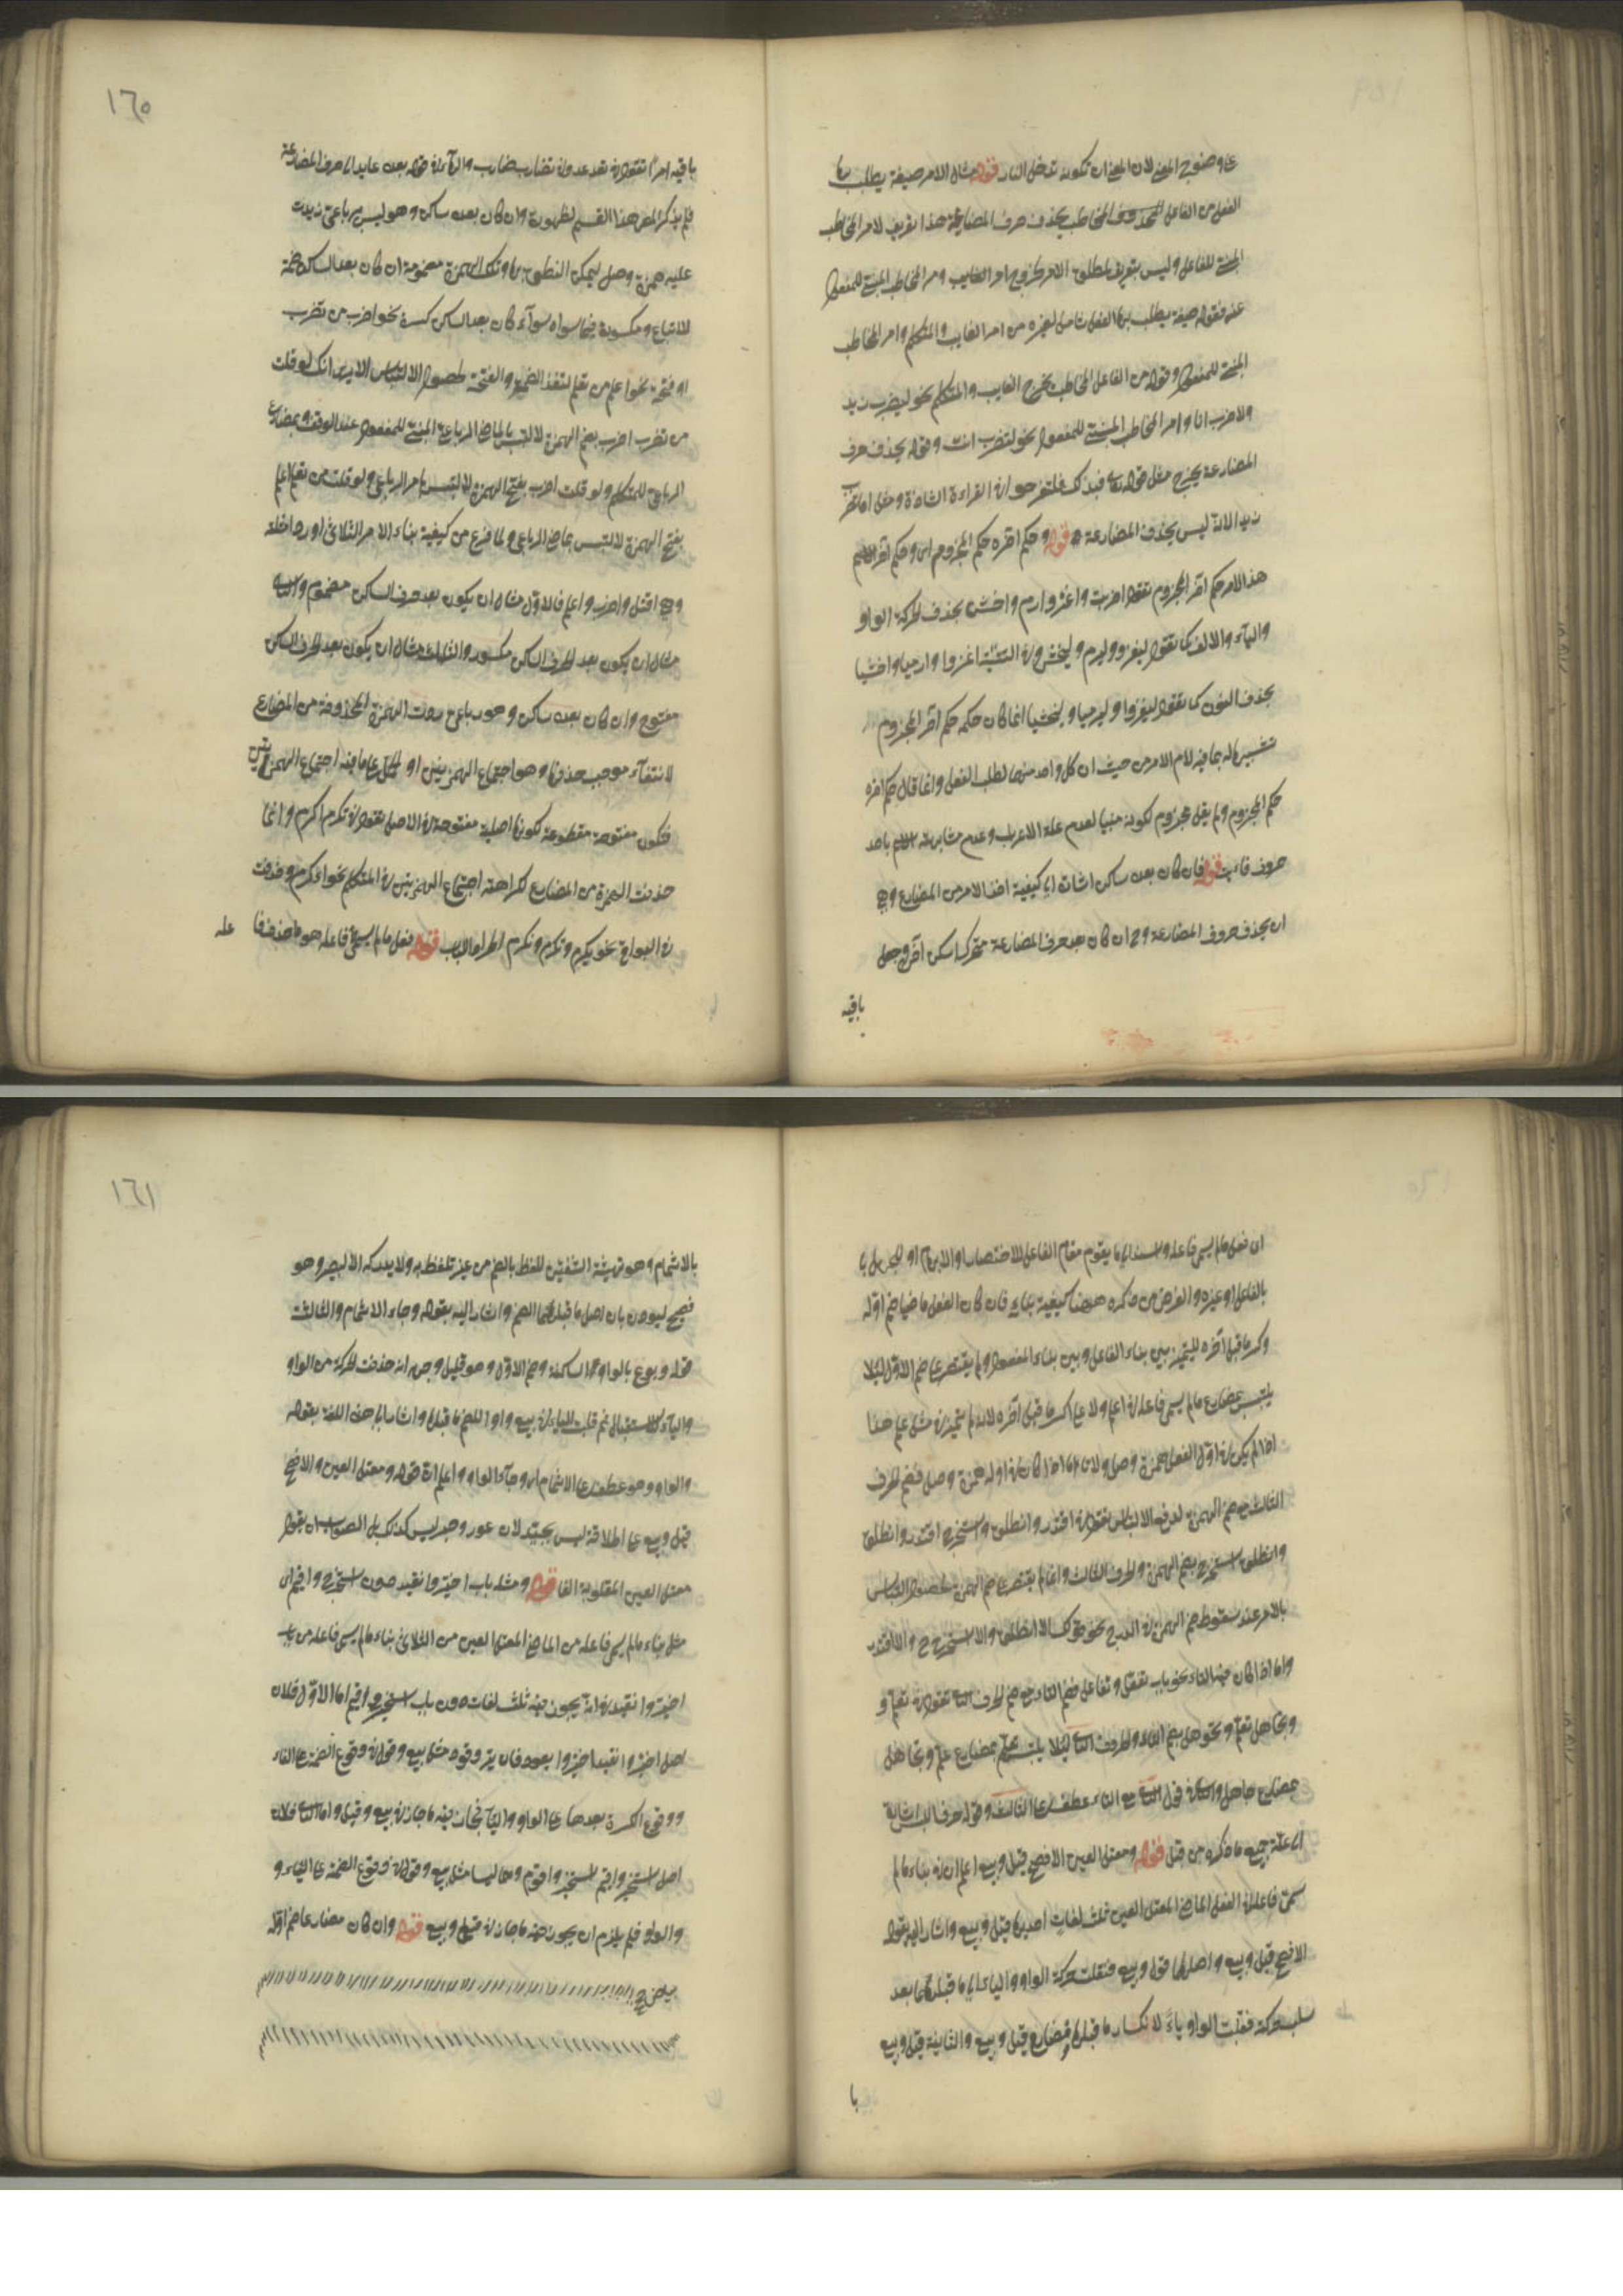 على وضوح المعنى لان المعنى ان تكون تدخل النار قوله مثال الامر صيغة يطلب بها
الفعل من الفاعل المخاطب بحذف حرف المضارعة هذا تعريف لامر المخاطب
المبنى للفاعل وليس بتعريف لمطلق الامر لخروج امر الغايب وامر المخاطب المبنى للمفعول
عنه فقوله صيغة يطلب بها الفعل شامل لغيره من امر الغايب والمتكلم وامر المخاطب
المبنى للمفعول وقوله من الفاعل المخاطب يخرج الغايب والمتكلم نحو ليضرب زيد
ولاضرب انا وامر المخاطب المبنى للمفعول نحو لتضرب انت وقوله بحذف حرف
المضارعة يخرج مثل قوله تعالى فبذلك فلتفرحوا في القراءة الشاذة ومثل
زيدا لانه ليس بحذف المضارعة قوله وحكم اخره حكم المجزوم اى وحكم اخر
هذا الامر حكم اخر المجزوم تقول اضرب واغز وارم واخش بحذف الحركة الواو
والياء والالف كما تقول ليغز وليرم وليخش وفى التثنية اغزوا وارميا واخشيا
بحذف النون كما تقول ليغزوا وليرميا وليخشيا انما كان حكمه حكم اخر المجزوم
تشبيها له بما فيه لام الامر من حيث ان كل واحد منهما لطلب الفعل وانما قال حكم اخره
حكم المجزوم ولم يقل مجزوم لكونه مبنيا لعدم علة الاعراب وعدم مشابهته باحد
حروف فانيت قوله فان كان بعده ساكن اشارة الى كيفية اخذ الامر من المضارع وهى
ان يحذف حروف المضارعة وح ان كان بعد حرف المضارعة متحرك اسكن اخره وجعل
باقيه
١٦٠
باقيه امرا تقول فى تعد عد وفى تضارب ضارب والهاء فى قوله بعده عايد الى حرف المضارعة
فلم يذكر المص هذا القسم لظهوره وان كان بعده ساكن وهو ليس برباعى زيدت
عليه همزة وصل ليمكن النطق بها وتلك الهمزة مضمومة ان كان بعد الساكن ضمة
للاتباع ومكسورة فيما سواه سوآء كان بعد الساكن كسرة نحو اضرب من تضرب
او فتحة نحو اعلم من تعلم لتعذر الضمة والفتحة لحصول الالتباس الا يرى انك لو قلت
من تضرب اضرب بضم الهمزة لالتبس بالماضى الرباعى المبنى للمفعول عند الوقف وبمضارع
الرباعى للمتكلم ولو قلت اضرب بفتح الهمزة لالتبس بامر الرباعى ولو قلت من تعلم اعلم
بفتح الهمزة لالتبس بماضى الرباعى ولما فرغ من كيفية بناء الامر الثلاثى اورد امثلة
وهى اقتل واضرب واعلم فالاول مثال ان يكون بعد حرف الساكن مضموم والثانى
مثال ان يكون بعد الحرف الساكن مكسور والثالث مثال ان يكون بعد الحرف الساكن
مفتوح وان كان بعده ساكن وهو رباعى ردت الهمزة المحذوفة من المضارع
لانتفآء موجب حذفها وهو اجتماع الهمزتين او الحمل على ما فيه اجتماع الهمزتين
فتكون مفتوحة مقطوعة لكونها اصلية مفتوحة فى الاصل تقول فى تكرم اكرم وانما
حذفت الهمزة من المضارع كراهة اجتماع الهمزتين فى المتكلم نحو اءكرم وحذفت
فى البواقى نحو يكرم وتكرم ونكرم اطرادا للباب قوله فعل ما لم يسم فاعله هو ما حذف فاعله
ان فعل ما لم يسم فاعله واسند الى ما يقوم مقام الفاعل للاختصار او الابهام او للجهل
بالفاعل او غيره والغرض من ذكره ههنا كيفية بنايه فان كان الفعل ماضيا ضم اوله
وكسر ما قبل اخره للتمييز بين بناء الفاعل وبين بناء المفعول ولم يقتصر على ضم الاول ليلا
يلتبس بمضارع ما لم يسم فاعله فى اعلم ولا على كسر ما قبل اخره لانه لم يتميز فى مثل علم هذا
اذا لم يكن فى اول الفعل همزة وصل ولا تاء اما اذا كان فى اوله همزة وصل فضم الحرف
الثالث مع ضم الهمزة لدفع الالتباس تقول فى اقتدر وانطلق واستخرج اقتدر وانطلق
وانطلق استخرج بضم الهمزة والحرف الثالث وانما لم يقتصر على ضم الهمزة لحصول التباس
بالامر عند سقوط ضم الهمزة فى الدرج نحو قولك الا انطلق والا استخرج والا اقتدر
واما اذا كان فيه التاء نحو باب تفعل وتفاعل فضم التاء مع ضم الحرف الثانى تقول فى تعلم و
وتجاهل تعلم وتجوهل بضم التاء والحرف الثانى ليلا يلتبس بمضارع علم وتجاهل
بمضارع جاهل والثانى مع التاء عطف على الثالث وقوله خوف اللبس اشارة
الى علة جميع ما ذكره من قبل قوله ومعتل العين الافصح قيل وبيع اعلم ان فى بناء ما لم
يسم فاعله فى الفعل الماضى المعتل العين ثلث لغات احديها قيل وبيع واشار اليه بقوله
الافصح قيل وبيع واصلهما قول وبيع فنقلت حركة الواو والياء الى ما قبلهما بعد
سلب حركته فقلبت الواو ياء لانكسار ما قبلها فصار قيل وبيع والثانية قيل وبيع
با
١٦١
بالاشمام وهو تهيئة الشفتين للفظ بالضم من غير تلفظ به ولا يدركه الا البصير وهو
فصيح ليوذن بان اصل ما قبلهما الضم واشار اليه بقوله وجاء الاشمام والثالث
قوله وبوع بالواو الساكنة وضم الاول وهو قليل وجهه انه حذفت الحركة من الواو
والياء للاستثقال ثم قلبت الياء فى بيع واوا لضم ما قبلها واشار الى هذه اللغة بقوله
والواو وهو عطف على الاشمام اى وجآء الواو واعلم ان قوله ومعتل العين الافصح
قيل وبيع على اطلاقه ليس بجيد لان عور وصيد ليس كذلك بل الصواب ان يقول
معتل العين المقلوبة الفا قوله ومثله باب اختير وانقيد دون استخير واقيم اى
مثل بناء ما لم يسم فاعله من الماضى المعتل العين من الثلاثى بناء ما لم يسم فاعله من باب
اختير وانقيد فى انه يجوز فيه ثلث لغات دون باب استخير واقيم اما الاول فلان
اصل اختير وانقيد اختير وانقود فان تير وقود مثل بيع وقول فى وقوع الضمة على الفاء
ووقوع الكسرة بعدها على الواو والياء فجاز فيه ما جاز فى بيع وقيل واما الثانى فلان
اصل استخير واقيم استخير واقوم وهما ليسا مثل بيع وقول فى وقوع الضمة على الياء و
والواو فلم يلزم ان يجوز فيه ما جاز فى قيل وبيع قوله وان كان مضارعا ضم اوله